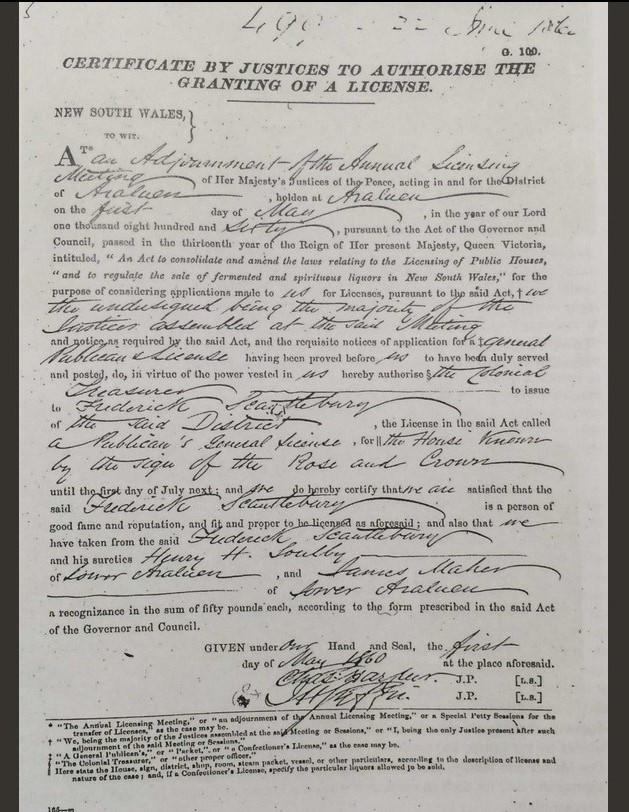 G. 109.
CERTIFICATE BY JUSTICES TO AUTHORISE THE
GRANTING OF A LICENSE.
NEW SOUTH WALES,
TO WIT. }
AT* an Adjournment of the Annual Licensing
Meeting of Her Majesty's Justices of the Peace, acting in and for the District
of Araluen, holden at Araluen
on the first day of May, in the year of our Lord
one thousand eight hundred and Sixty, pursuant to the Act of the Governor and
Council, passed in the thirteenth year of the Reign of Her present Majesty, Queen Victoria,
intituled, "An Act to consolidate and amend the laws relating to the Licensing of Public Houses,
"and to regulate the sale of fermented and spirituous liquors in New South Wales," for the
purpose of considering applications made to us for Licenses, pursuant to the said Act, † we
the undersigned being the majority of the
Justices assembled at the said Meeting
and notice as required by the said Act, and the requisite notices of application for a ‡ general
Publicans License having been proved before us to have been duly served
and posted, do, in virtue of the power vested in us hereby authorise § the Colonial
Treasurer to issue
to Frederick Scantlebury
of the said District, the License in the said Act called
a Publican's General License, for || the House known
by the sign of the Rose and Crown
until the first day of July next; and we do hereby certify that we are satisfied that the
said Frederick Scantlebury is a person of
good fame and reputation, and fit and proper to be licensed as aforesaid; and also that we
have taken from the said Frederick Scantlebury
and his sureties Henry H. Soulsby
of Lower Araluen, and James Maher
of Lower Araluen
a recognizance in the sum of fifty pounds each, according to the form prescribed in the said Act
of the Governor and Council.
GIVEN under Our Hand and Seal, the first
day of May 1860 at the place aforesaid.
Chas Harpur J.P. [L.S.]
J.P. [L.S.]
* "The Annual Licensing Meeting," or "an adjournment of the Annual Licensing Meeting," or a Special Petty Sessions for the
transfer of Licenses," as the case may be.
† "We, being the majority of the Justices assembled at the said Meeting or Sessions," or "I, being the only Justice present after such
adjournment of the said Meeting or Sessions."
‡ "A General Publican's," or "Packet," or "a Confectioner's License," as the case may be.
§ "The Colonial Treasurer," or "other proper officer."
|| Here state the House, sign, district, shop, room, steam packet, vessel, or other particulars, according to the description of license and
nature of the case; and, if a Confectioner's License, specify the particular liquors allowed to be sold.